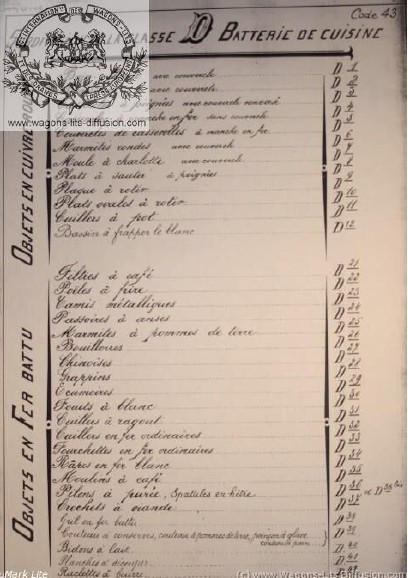 Code 43
LA CLASSE D BATTERIE DE CUISINE
OBJETS EN CUIVRE
avec couvercle D 1
avec couvercle D 2
poignées avec couvercle D 3
en fer sans couvercle D 4
Couvercles de casseroles à manche en fer D 5
Marmites rondes avec couvercle D 6
Moule à charlotte avec couvercle D 7
Plats à sauter à poignées D 8
Plaque à rôtir D 9
Plats ovales à rôtir D 10
Cuillers à pot D 11
Bassin à frapper le blanc D 12
OBJETS EN FER BATTU
Filtres à café D 21
Poêles à frire D 22
Tamis métalliques D 23
Passoires à anses D 24
Marmites à pommes de terre D 25
Bouilloires D 26
Chinoises D 28
Grappins D 29
Ecumoires D 30
Fouets à blanc D 31
Cuillers à ragout D 32
Cuillers en fer ordinaires D 33
Fourchettes en fer ordinaires D 34
Râpes en fer blanc D 35
Moulins à café D 36 et D 36 bis
Pilons à purée, Spatules en hêtre D 37
Crochets à viande
Gril en fer battu D 39
Couteaux à conserves, couteau à pommes de terre, poinçon à glace
couteau à pain
Bidons à lait
Planches à découper
Raclette à beurre
www.wagons-lits-diffusion.com
Mark Lite
(C) www.Wagons-Lits-Diffusion.com